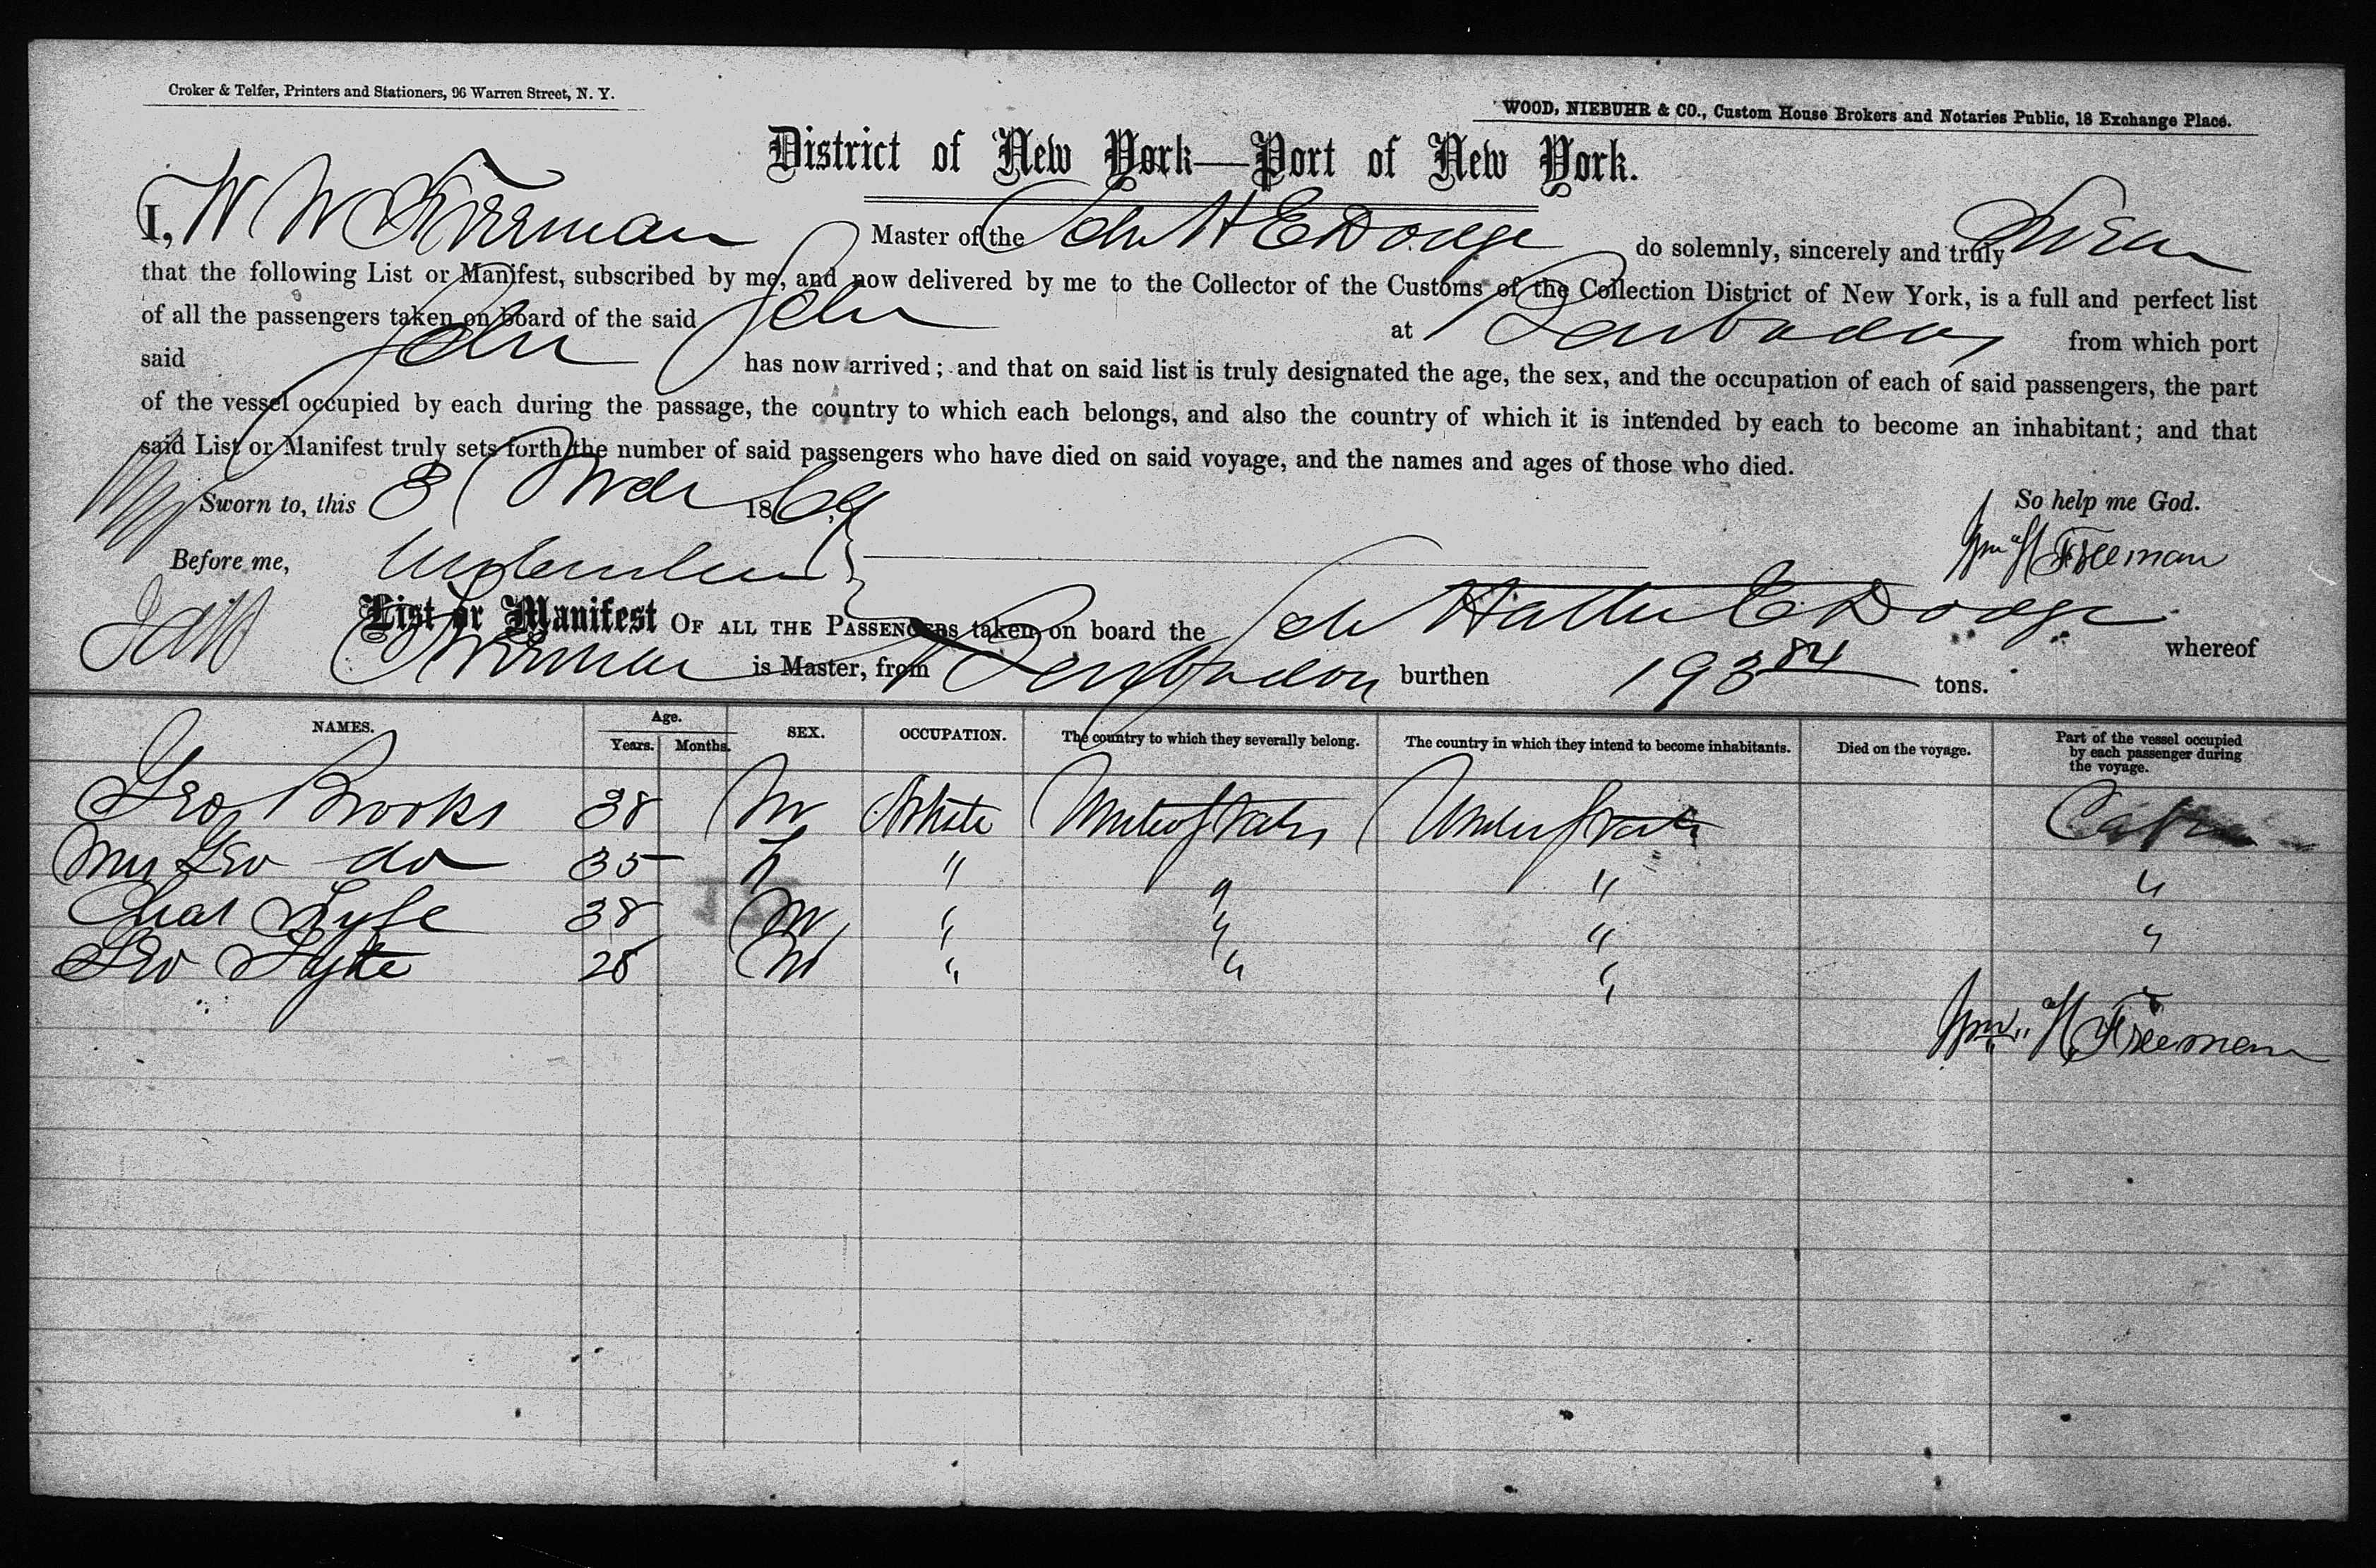 Croker & Telfer, Printers and Stationers, 96 Warren Street, N. Y.
WOOD, NIEBUHR & CO., Custom House Brokers and Notaries Public, 18 Exchange Place.
District of New York—Port of New York.
I, W W Freeman Master of the Schr H E Dodge do solemnly, sincerely and truly Swear
that the following List or Manifest, subscribed by me, and now delivered by me to the Collector of the Customs of the Collection District of New York, is a full and perfect list
of all the passengers taken on board of the said Schr at Barbados from which port
said Schr has now arrived; and that on said list is truly designated the age, the sex, and the occupation of each of said passengers, the part
of the vessel occupied by each during the passage, the country to which each belongs, and also the country of which it is intended by each to become an inhabitant; and that
said List or Manifest truly sets forth the number of said passengers who have died on said voyage, and the names and ages of those who died.
Sworn to, this 8 Mch 1869 So help me God.
Before me, Wm H Freeman
List or Manifest OF ALL THE PASSENGERS taken on board the Sch Hattie E Dodge whereof
Freeman is Master, from Barbados burthen 193 84 tons.
NAMES. Age. Years. Months. SEX. OCCUPATION. The country to which they severally belong. The country in which they intend to become inhabitants. Died on the voyage. Part of the vessel occupied by each passenger during the voyage.
Geo Brooks 38 M United States United States Cabin
Mrs Geo do 35 F " " " "
Chas 38 M " " " "
Geo 28 M " " "
Wm H Freeman